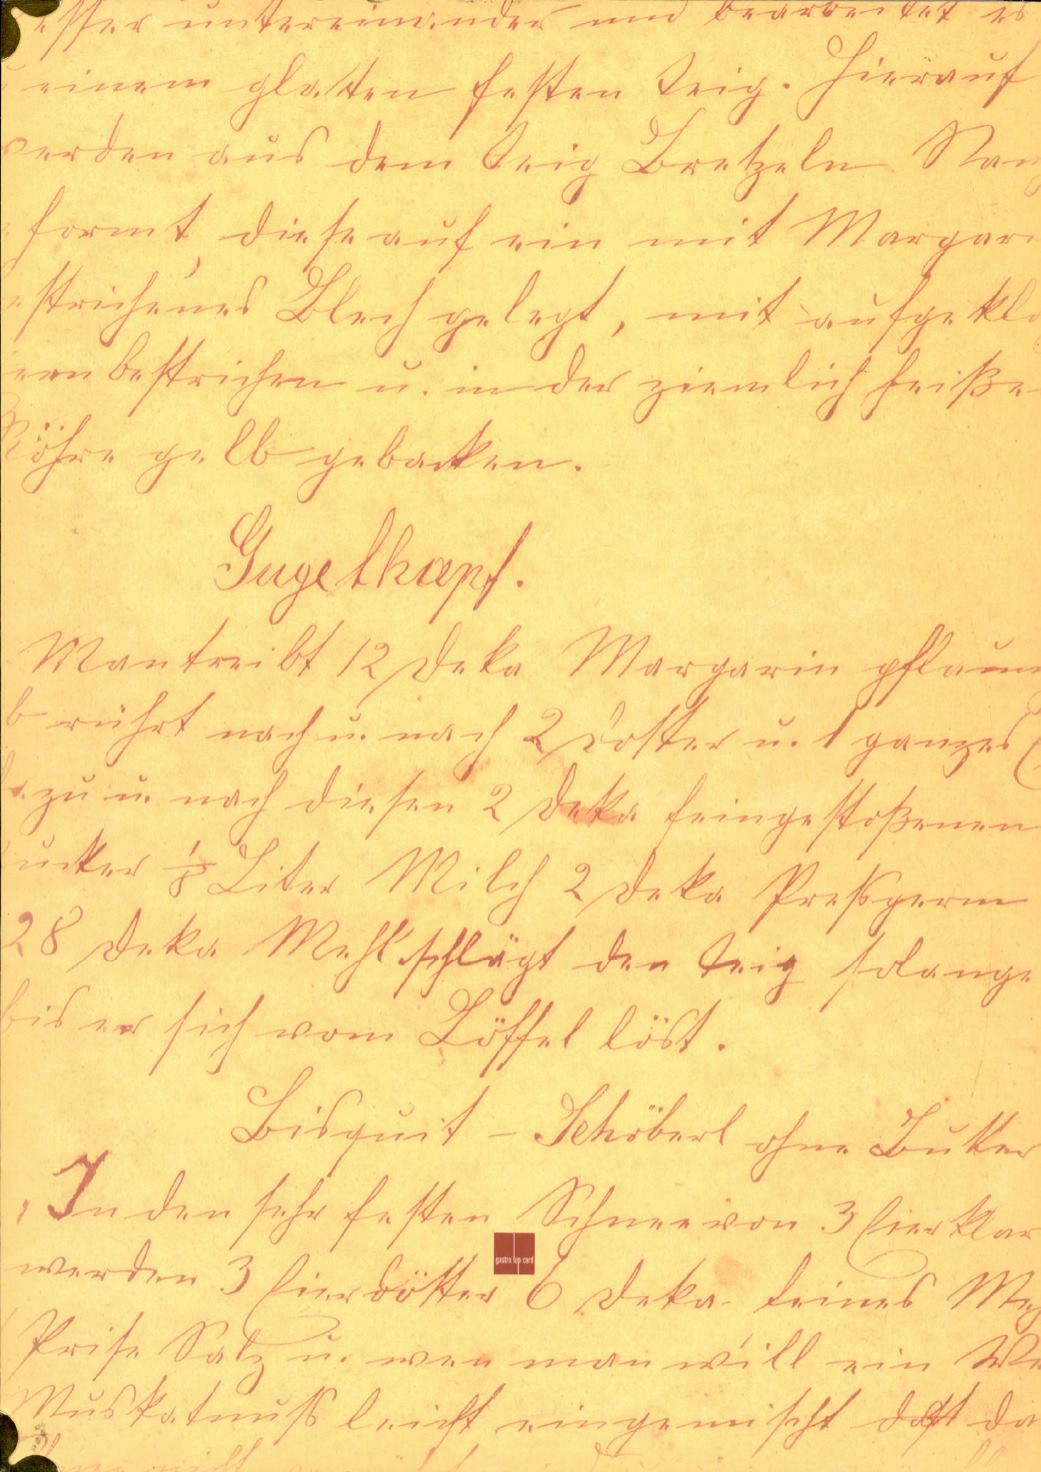 untereinander und bearbeitet es
einem glatten festen Teig. Hierauf
werden aus dem Teig Bretzeln
formt, diese auf ein mit Margari
estrichenes Blech gelegt, mit aufgekla
bestrichen u. in der ziemlich heiße
Röhre gelb gebacken.
Gugelhupf.
Man treibt 12 Deka Margarin pflaum
b rührt nach u. nach 2 Dotter u. 1 ganzes
zu u. nach diesen 2 Deka feingestoßenen
ucker 1/8 Liter Milch 2 Deka Pressgerm
28 Deka Mehl schlägt den Teig solange
bis er sich vom Löffel löst.
Bisquit - Schöberl ohne Butter
In den sehr festen Schnee von 3 Eierklar
werden 3 Eierdötter 6 Deka feines Meh
gastro top card
Prise Salz u. wen man will ein We
Muskatnuss leicht eingemischt da